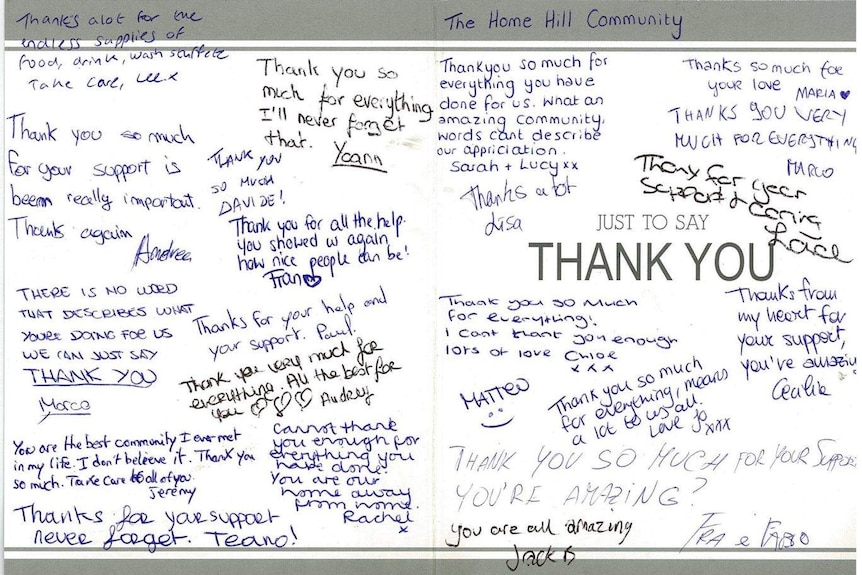 Thanks alot for the
endless supplies of
food, drink, wash stuff etc
Take care, Lee x
Thank you so
much for everything
I'll never forget
that.
Yoann
Thank you so much
for your support is
been really important.
Thanks again
Andrea
THANK YOU
SO MUCH
DAVIDE!
Thank you for all the help
you showed us again
how nice people can be!
Fran
THERE IS NO WORD
THAT DESCRIBES WHAT
YOURE DOING FOR US
WE CAN JUST SAY
THANK YOU
Marco
Thanks for your help and
your support. Paul.
Thank you very much for
everything. All the best for
you Audrey
You are the best community I ever met
in my life. I don't beleeve it. Thank you
so much. Take care to all of you.
Jeremy
Cannot thank
you enough for
everything you
have done.
You are our
home away
from home.
Rachel
x
Thanks for your support
never forget. Teano!
The Home Hill Community
Thankyou so much for
everything you have
done for us. What an
amazing community,
words cant describe
our appriciation.
Sarah + Lucy xx
Thanks so much for
your love MARIA
THANKS YOU VERY
MUCH FOR EVERYTHING
MARCO
Thanks a lot
Lisa
Thany for your
support & caring
JUST TO SAY
THANK YOU
Thank you so much
for everything!
I cant thank you enough
lots of love Chloe
x x x
Thanks from
my heart for
your support,
you're amazing
Cecilie
MATTEO
Thank you so much
for everything, means
a lot to us all.
Love Jo
xxx
THANK YOU SO MUCH FOR YOUR SUPPORT
YOU'RE AMAZING?
FRA e FABIO
you are all amazing
Jack B